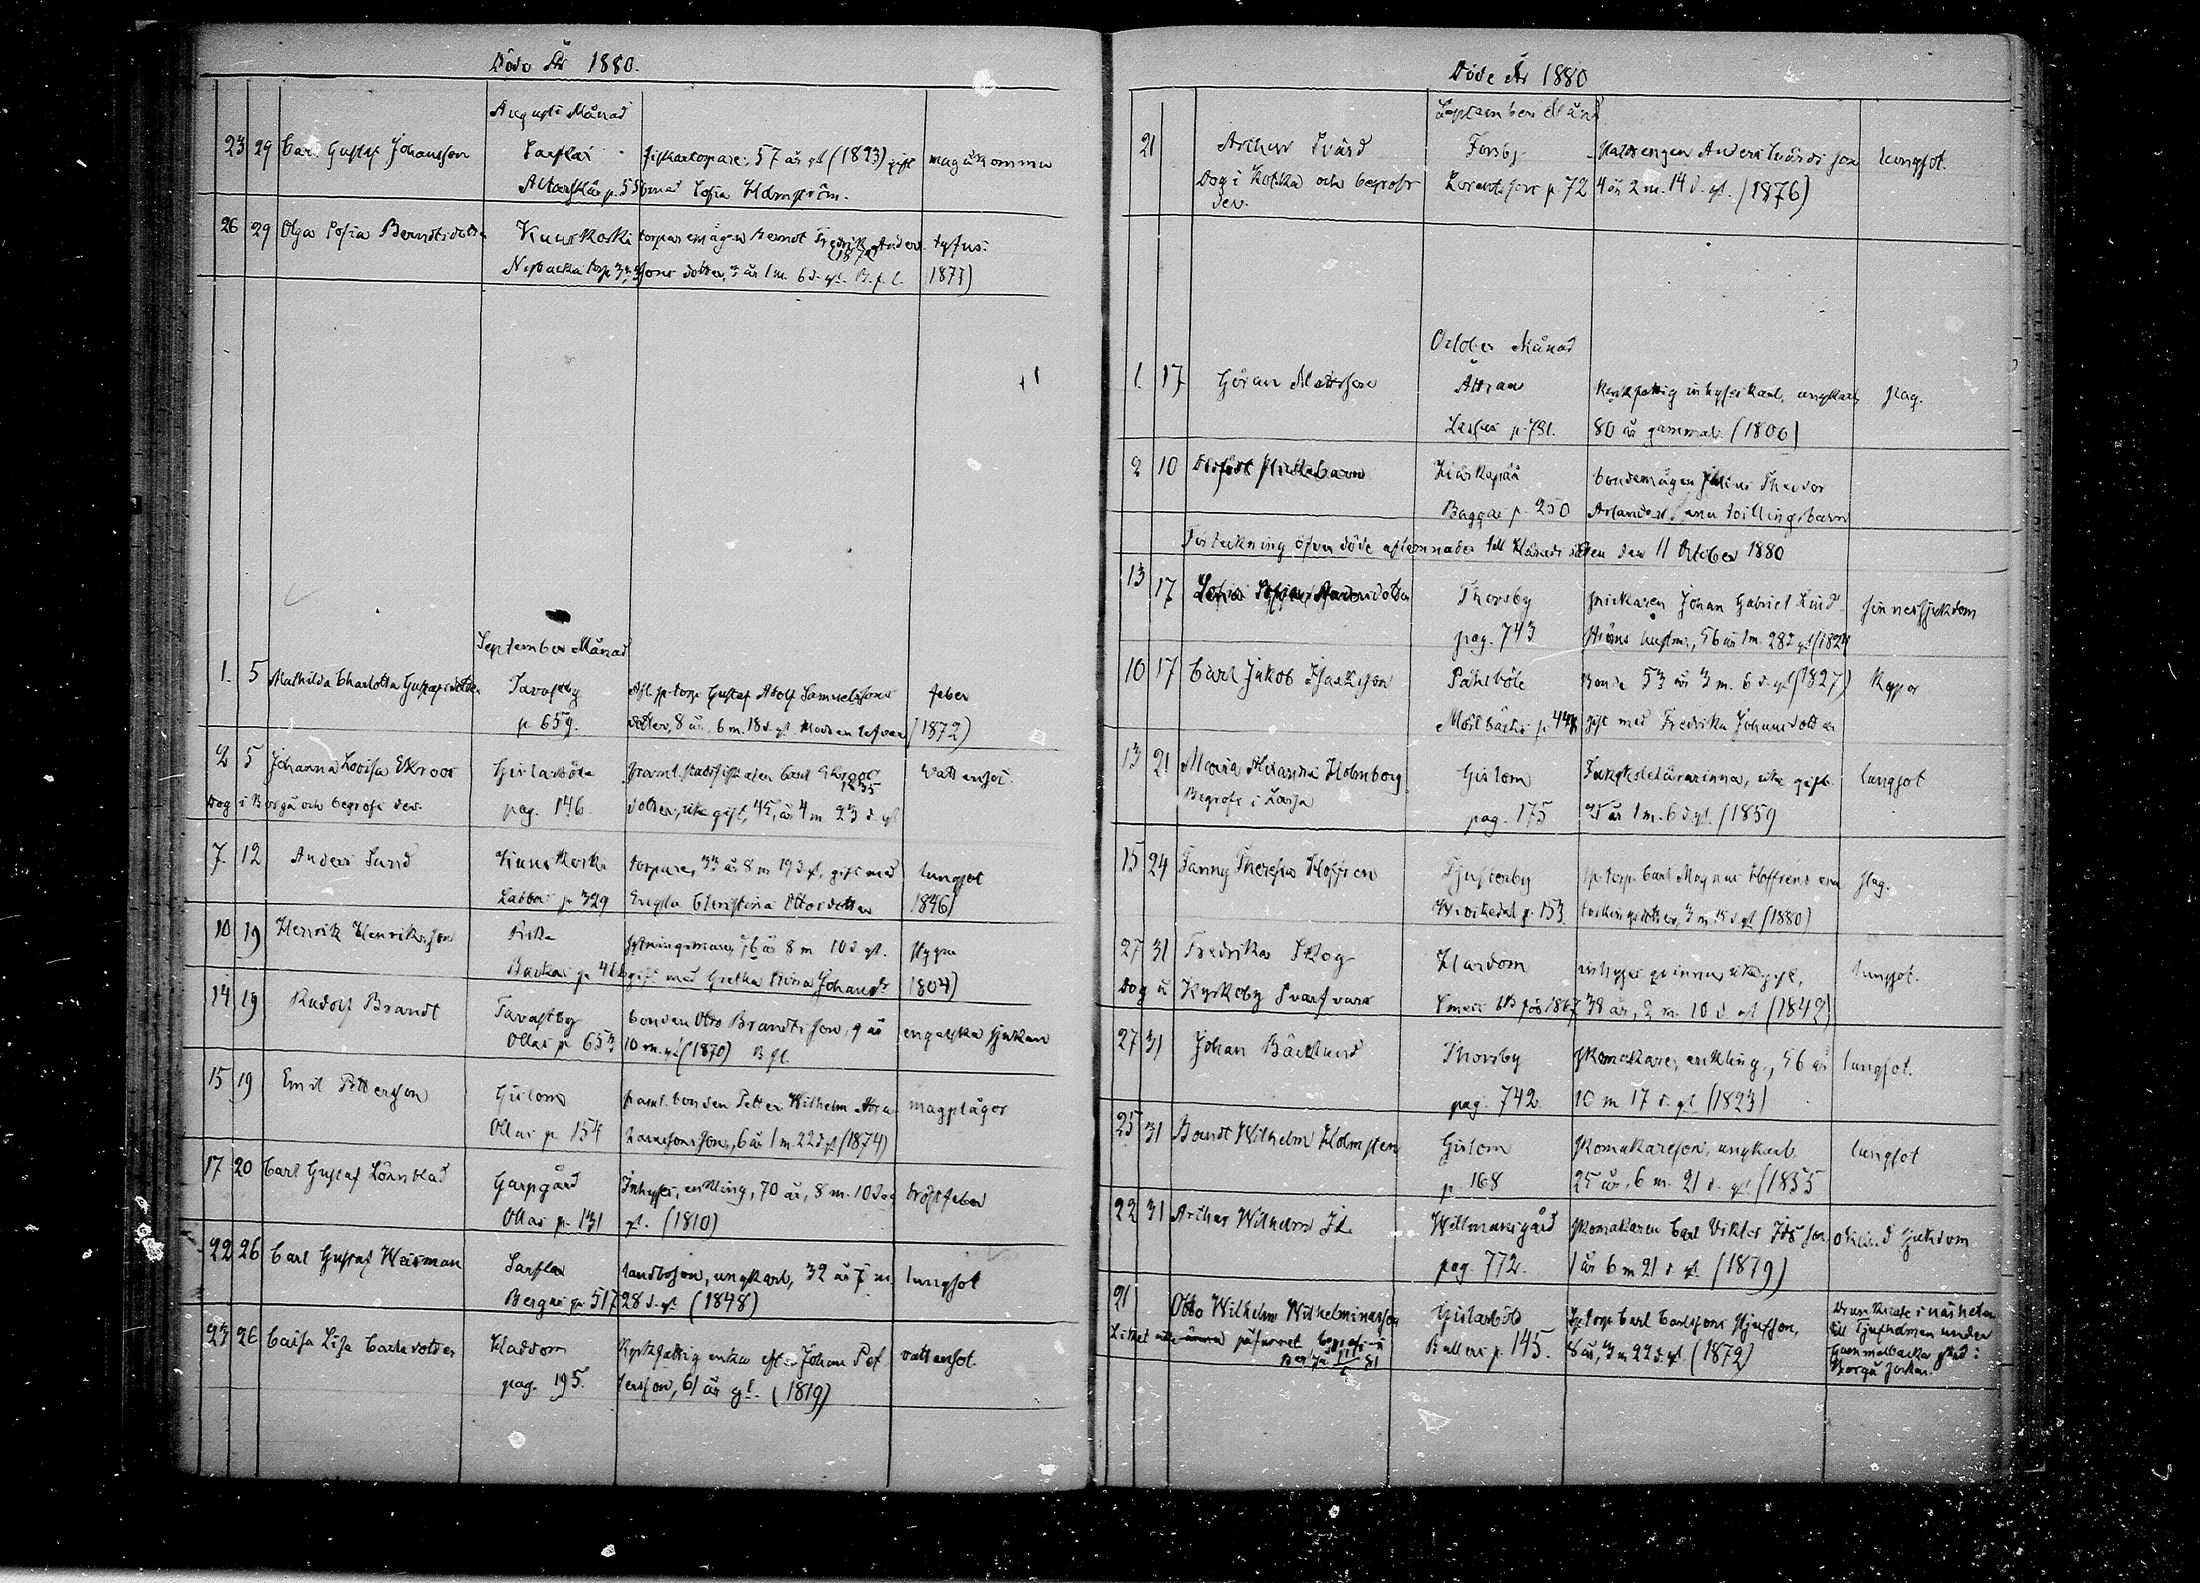 Döde År 1880.
Augusti Månad
23 29 Carl Gustaf Johansson Sarflax fiskartorpare, 57 år gl (1823) gift magåkomma
p. 55 med Sofia Holmström.
26 29 Olga Sofia Berndtsdotter Kuuskoski torparemågen Berndt Fredrik Anders tyfus.
(1873)
torp sons dotter, 7 år 1 m. 6 d. gl. B. f. l. 1873)
September Månad
1. 5 Mathilda Charlotta Gustafsdotter Tavastby Afl. sp. torp. Gustaf Adolf Samuelssons feber
p. 659. dotter, 8 år, 6 m. 18 d. gl. Modren lefver (1872)
2 5 Johanna Lovisa Ekroos Gislarböle framl. Carl Ekroos Vattensot.
1835
Dog i Borgå och begrofs der. pag. 146. dotter, icke gift, 45 år 4 m 23 d. gl
7. 12 Anders Lund Kuuskoski torpare, 33 år 8 m 19 d. gl, gift med lungsot
Labbas p. 329 Christina Ottosdotter 1846)
10 19 Henrik Henriksson 76 år 8 m 10 d. gl. Stygn
Backas p. gift med Gretha Johansdr 1804)
14 19 Rudolf Brandt Tavastby bonden Otto Brandts son, 9 år engelska sjukan
Ollas p. 653 10 m. gl. (1870) B. fl.
15 19 Emil Pettersson Gislom framl. bonden Petter Wilhelm Abra magplågor
Ollas p. 154 hamssons son, 6 år 1 m. 22 d. gl. (1874)
17 20 Carl Gustaf Lönnblad Garpgård Inhyses, enkling, 70 år, 8 m. 10 dag bröstfeber
Ollas p. 131 gl. (1810)
22 26 Carl Gustaf Weisman Sarflax landboson, ungkarl, 32 år 7 m lungsot
Bergas p. 517 28 d. gl. (1848)
23 26 Caisa Lisa Carlsdotter Hardom Kyrkfattig enka efter Johan Pet vattensot.
pag. 195. tersson, 61 år gl. (1819)
Döde År 1880
September Månad
21 Arthur Svärd Forsby Anders Svärds son lungsot
Dog i Kotka och begrofs Lorentz p. 72 4 år 2 m. 14 d. gl. (1876)
der.
October Månad
1. 17 Göran Mattsson Kyrkfattig inhyses karl, ungkarl, slag.
p. 781. 80 år gammal. (1806)
2 10 Dödfödt flickebarn Kiuskepää bondemågen Julius Theodor
Baggas p. 250 tvillingsbarn
Förteckning öfver döde aflemnades till Härads rätten den 11 October 1880
13 17 Thorsby snickaren Johan Gabriel Lind sinnessjukdom
pag. 743 ströms hustru, 56 år 1 m. 28 d. gl (1824)
10 17 Carl Jakob Isaksson Påhlsböle Bonde 53 år 3 m. 6 d. gl (1827) Koppor
gift med Fredrika Johansdotter
13 21 Maria Alexandra Holmberg Gislom Folkskolelärarinna, icke gift lungsot
Begrofs i pag. 175 21 år 1 m. 6 d. gl. (1859
15 24 Fanny Theresia Hoffren Tjusterby sp. torp. Carl Magnus Hoffréns ena slag.
p. 153 tvillingsdotter, 3 m 15 d. gl (1880)
27 31 Fredrika Skog Hardom inhyses qvinna, icke gift, lungsot.
Dog å Kyrkoby 1867 38 år, 2 m. 10 d gl (1842)
27 31 Johan Bäcklund Thorsby skomakare, enkling, 56 år lungsot.
pag. 742 10 m 17 d. gl. (1823)
25 31 Berndt Wilhelm Holmsten Gislom Skomakareson, ungkarl lungsot
p. 168 25 år, 6 m. 21 d. gl. (1855
22 31 Arthur Wilhelm Id Willmansgård Skomakaren Carl Viktor Ids son okänd sjukdom
pag. 772. 1 år 6 m 21 d. gl. (1879)
21 Otto Wilhelm Wilhelminasson Gislarböle Sp. torp. Carl Carlssons styfson, Drunknade i närheten
Liket icke ännu påfunnet begrofs i Bullers p. 145. 8 år, 3 m 22 d. gl. (1872) till Tjusholmen under
Gammelbacka gård i
Borgå socken.